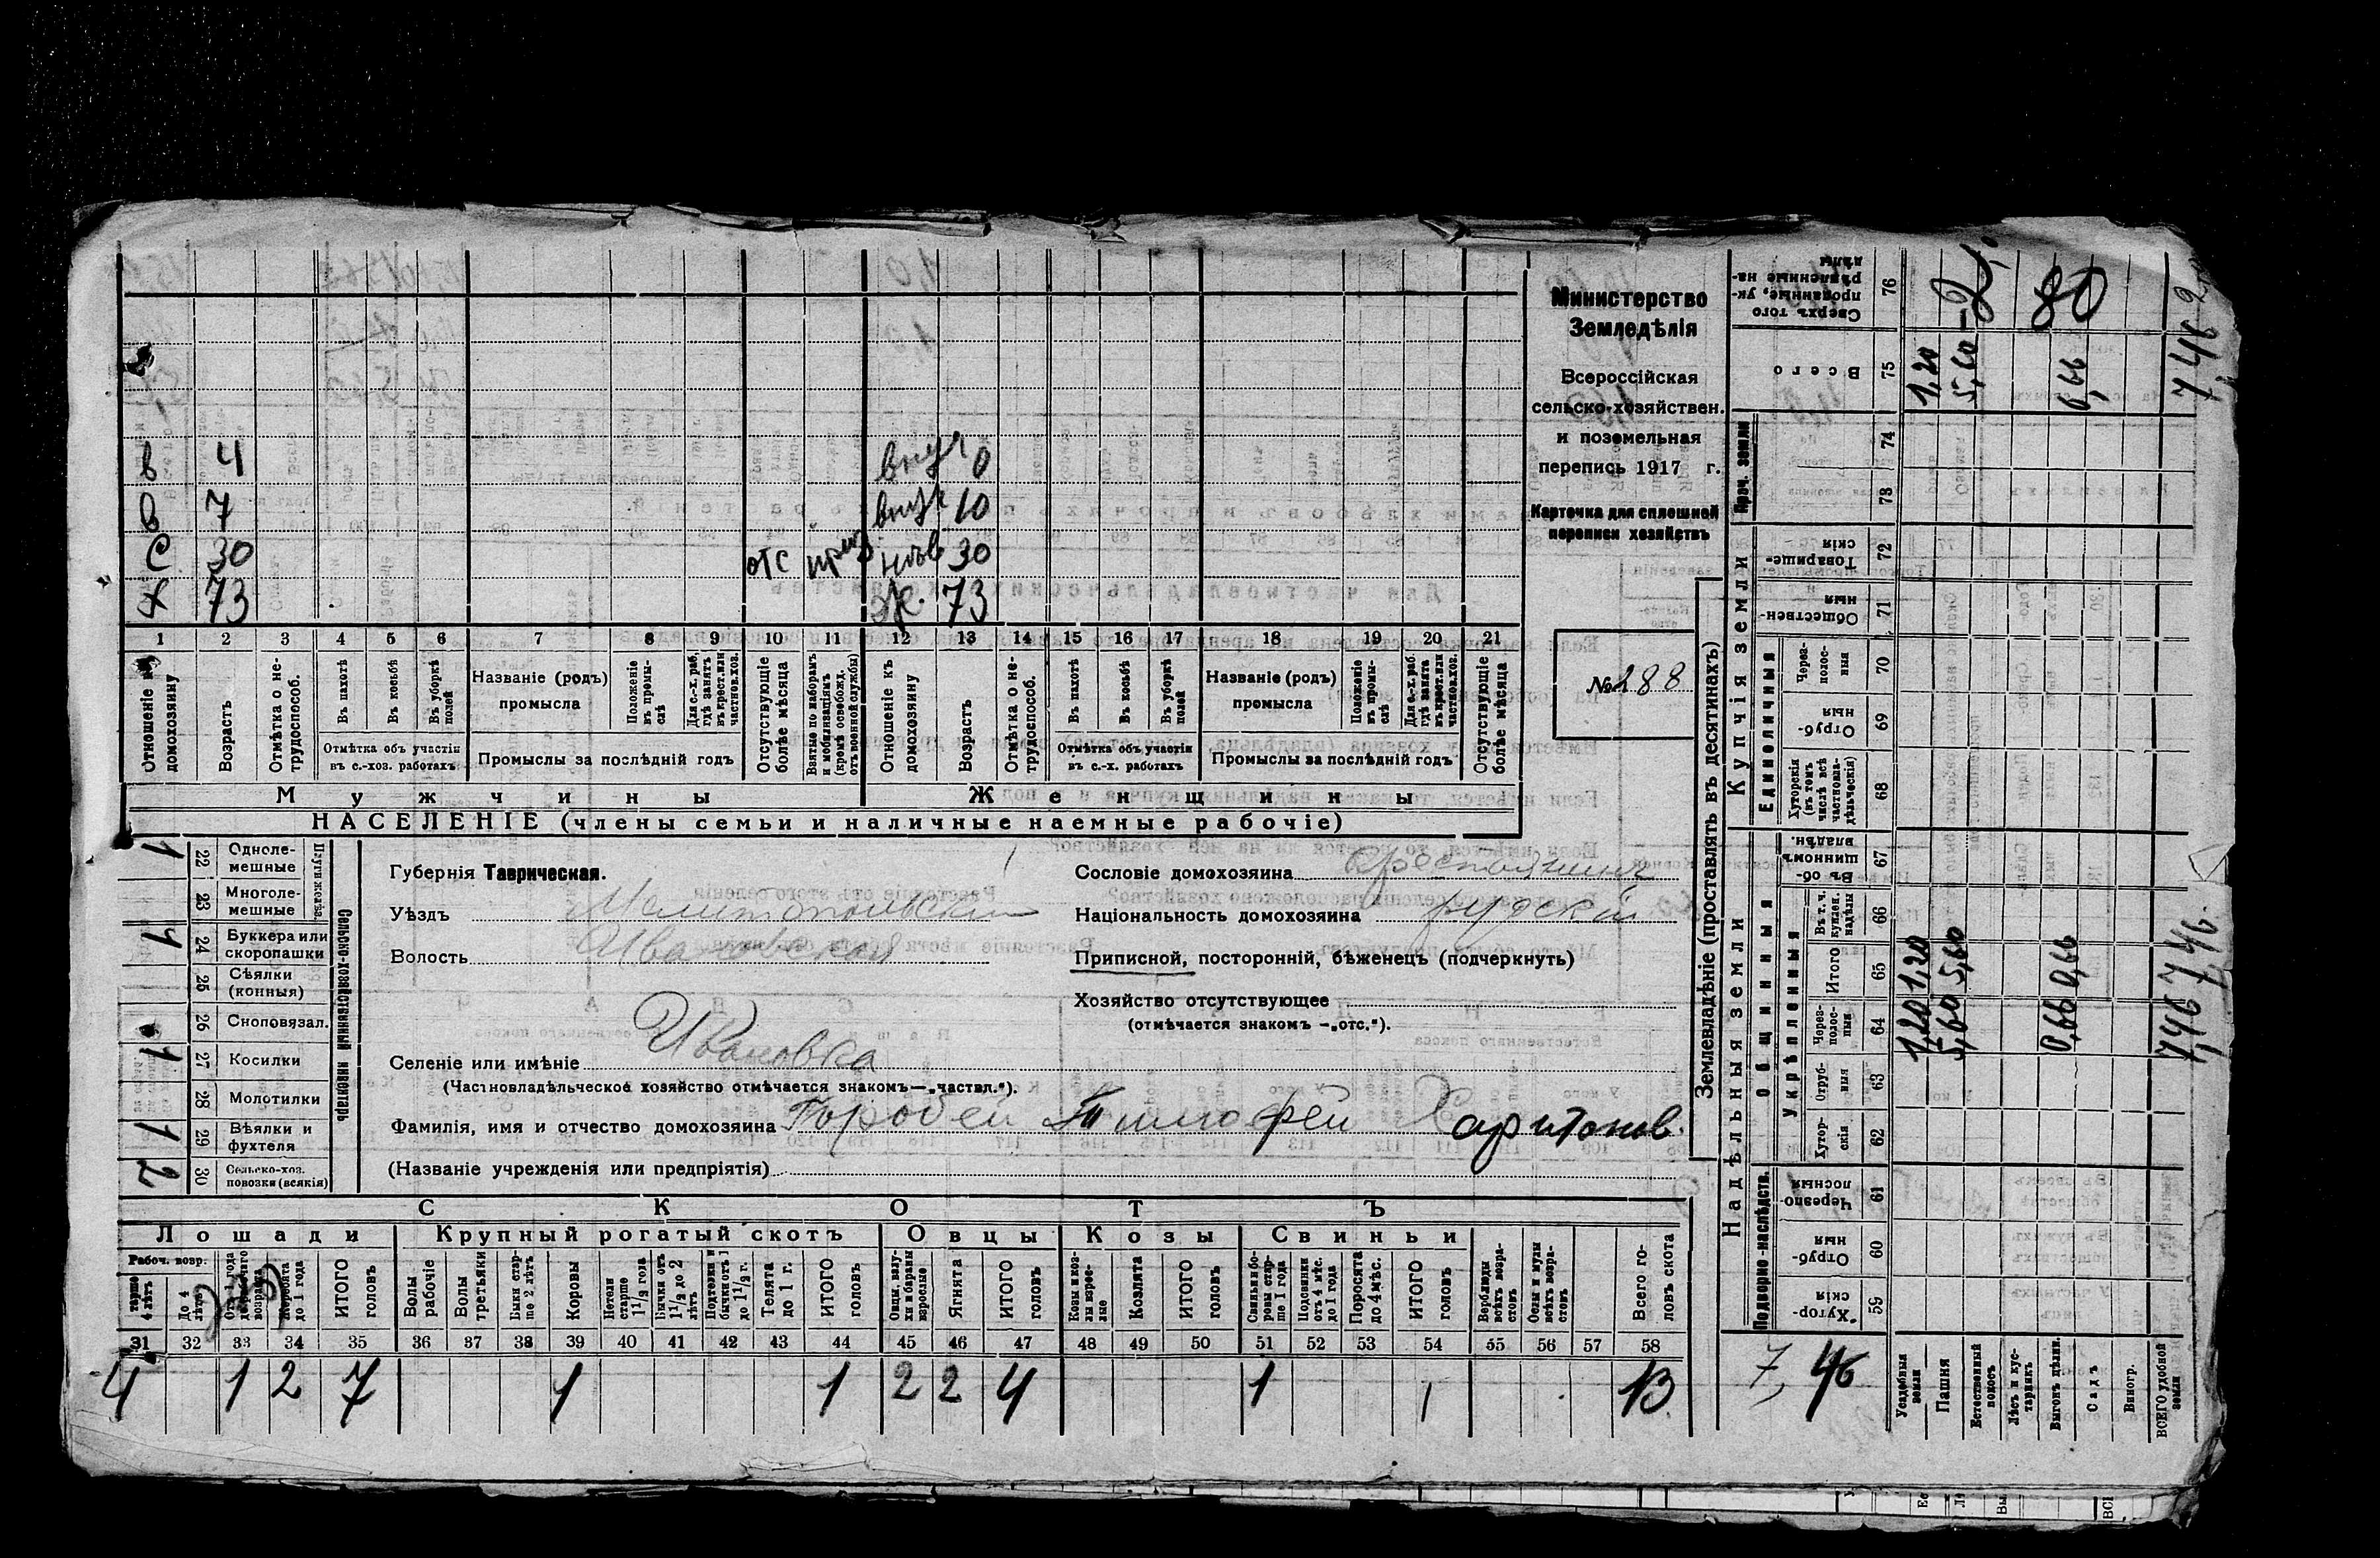 Министерство
Земледѣлія
Всероссійская
сельско-хозяйствен.
и поземельная
перепись 1917 г.
Карточка для сплошной
переписи хозяйствъ
№ 288
в 4 внук 0
в 7 внук 10
с 30 отс невѣ 30
х 73 ж. 73
1 2 3 4 5 6 7 8 9 10 11 12 13 14 15 16 17 18 19 20 21
Отношеніе къ домохозяину
Возрастъ
Отмѣтка о не-трудоспособ.
Въ пахотѣ
Въ косьбѣ
Въ уборкѣ полей
Отмѣтка объ участіи въ с.-хоз. работахъ
Названіе (родъ) промысла
Положеніе въ промы-слѣ
Для с.-х. раб, гдѣ занятъ въ крест. или частнов. хоз.
Промыслы за послѣдній годъ
Отсутствующіе болѣе мѣсяца
Взятые по наборамъ и мобилизаціямъ (кромѣ освобожд. отъ военной службы)
Отношеніе къ домохозяину
Возрастъ
Отмѣтка о не-трудоспособ.
Въ пахотѣ
Въ косьбѣ
Въ уборкѣ полей
Отмѣтка объ участіи въ с.-х. работахъ
Названіе (родъ) промысла
Положеніе въ промы-слѣ
Для с.-х. раб. гдѣ занята въ крест. или частнов. хоз.
Промыслы за послѣдній годъ
Отсутствующіе болѣе мѣсяца
Мужчины Женщины
НАСЕЛЕНІЕ (члены семьи и наличные наемные рабочіе)
Сельско-хозяйственный инвентарь
22 Одноле-мешные 1
23 Многоле-мешные
24 Буккера или скоропашки 1
25 Сѣялки (конныя)
26 Сноповязал.
27 Косилки 1
28 Молотилки
29 Вѣялки и фухтеля 1
30 Сельско-хоз. повозки (всякія) 2
Губернія Таврическая.
Уѣздъ Мелитопольскій
Волость Ивановская
Селеніе или имѣніе Ивановка
(Частновладѣльческое хозяйство отмѣчается знакомъ—„частвл.").
Фамилія, имя и отчество домохозяина Горобей Тимофей Харитонов.
(Названіе учрежденія или предпріятія)
Сословіе домохозяина крестьянинъ
Національность домохозяина русскій
Приписной, посторонній, бѣженецъ (подчеркнуть)
Хозяйство отсутствующее
(отмѣчается знакомъ -„отс.").
СКОТЪ
Лошади Крупный рогатый скотъ Овцы Козы Свиньи
Рабоч. возр.
До 4 лѣтъ
Жеребята до 1 года
ИТОГО головъ
Волы рабочіе
Волы третьяки
Быки стар-ше 2 лѣтъ
Коровы
Нетели старше 1 1/2 года
Бычки отъ 1 1/2 до 2 лѣтъ
Подтелки и бычки отъ 1 до 1 1/2 г.
Телята до 1 г.
ИТОГО головъ
Овцы, валу-хи и бараны взрослые
Ягнята
ИТОГО головъ
Козы и коз-лы взрос-лые
Козлята
ИТОГО головъ
Свиньи и бо-ровы стар-ше 1 года
Подсвинки отъ 4 мѣс. до 1 года
Поросята до 4 мѣс.
ИТОГО головъ
Верблюды всѣхъ возра-стовъ
Ослы и мулы всѣхъ возра-стовъ
Всего го-ловъ скота
31 32 33 34 35 36 37 38 39 40 41 42 43 44 45 46 47 48 49 50 51 52 53 54 55 56 57 58
4 1 2 7 1 1 2 2 4 1 1 13
Землевладѣніе (проставлять въ десятинахъ)
Надѣльныя земли
Купчія земли
Подворно-наслѣдств.
Общинныя
Укрѣпленныя
Единоличныя
Проч. земли
76 Сверхъ того проданные, ук-рѣпленные на-дѣлы
75 Всего 1,20 5,60 0,66 7,46
74
73
72 Товарище-скія
71 Обществен-ныя
70 Через-полос-ныя
69 Отруб-ныя
68 Хуторскія (въ томъ числѣ всѣ частновла-дѣльческія)
67 Въ об-щинномъ владѣн.
66 Въ т. ч. куплен. надѣлы
65 Итого 1,20 5,60 0,66 7,46
64 Через-полос-ныя 1,20 5,60 0,66 7,46
63 Отруб-ныя
62 Хутор-скія
61 Черезпо-лосныя
60 Отруб-ныя
59 Хутор-скія
80
7,46
Усадебныя земли
Пашня
Естественный покосъ
Лѣсъ и кус-тарникъ
Выгонъ дѣлян.
Садъ
Виногр.
ВСЕГО удобной земли